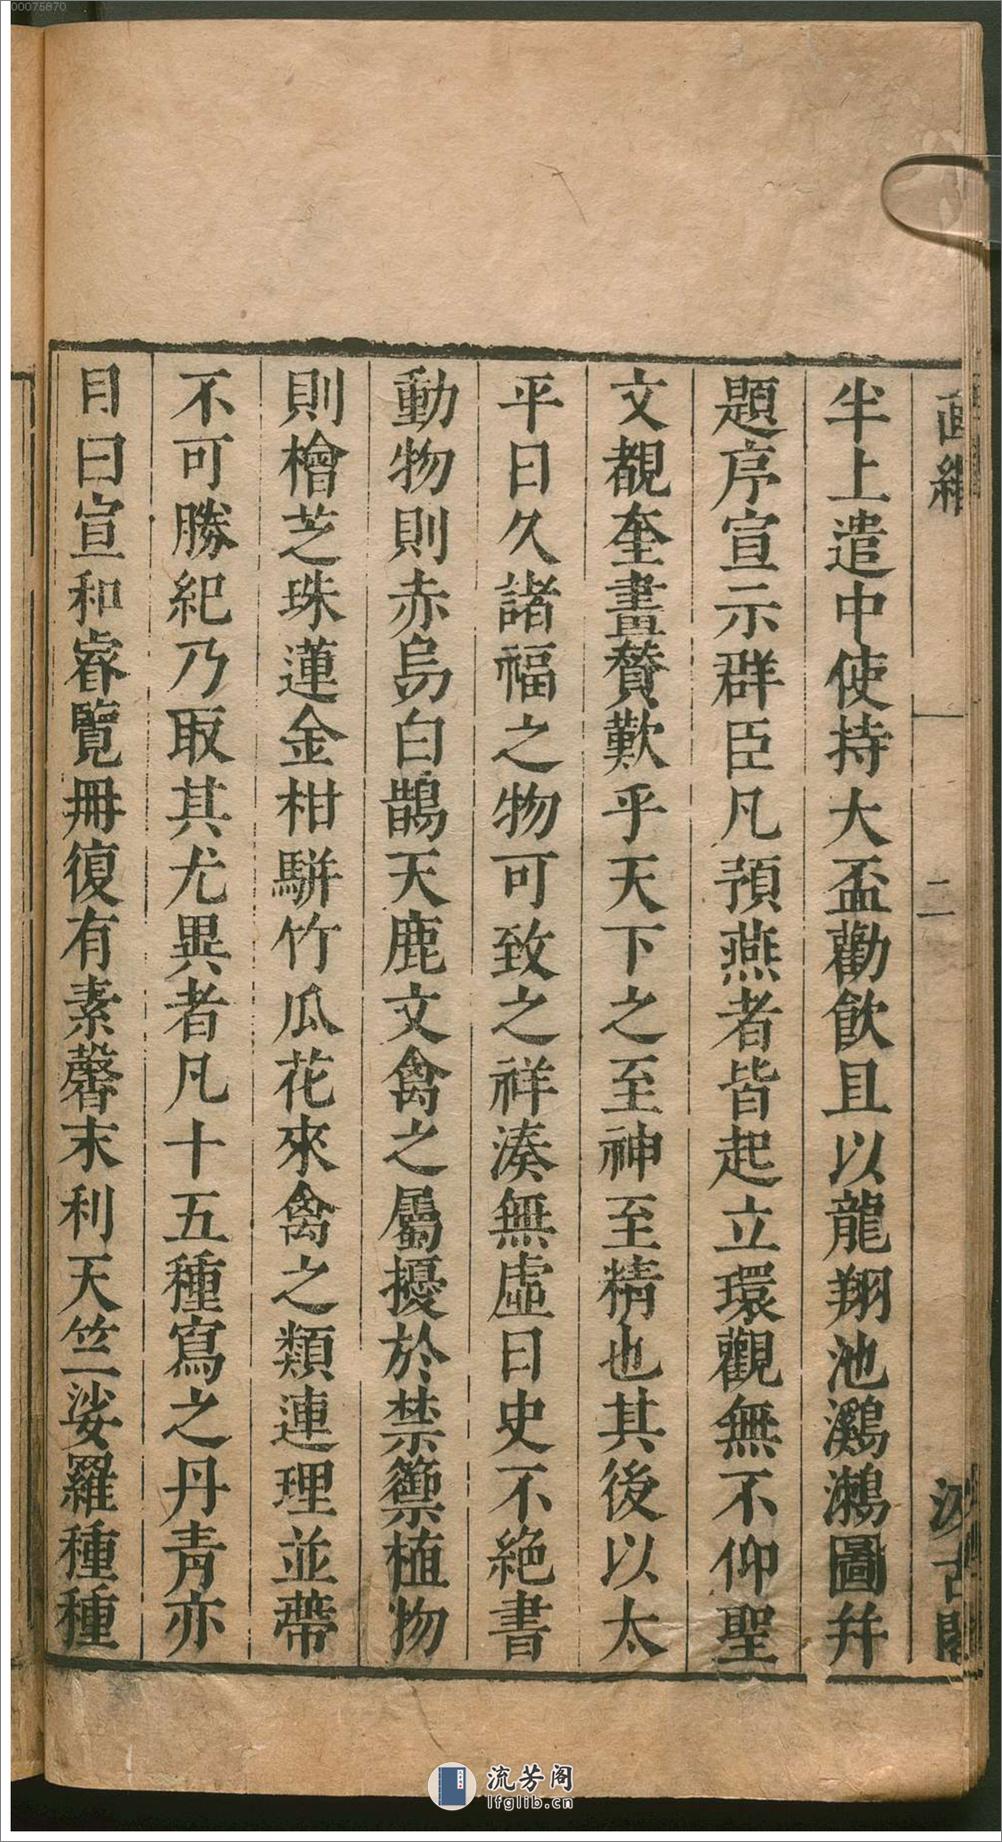 半上遣中使持大盃勸飲且以龍翔池鸂鶒圖并
題序宣示群臣凡預燕者皆起立環觀無不仰聖
文覩奎畫贊歎乎天下之至神至精也其後以太
平日久諸福之物可致之祥湊無虛日史不絕書
動物則赤烏白鵲天鹿文禽之屬擾於禁籞植物
則檜芝珠蓮金柑駢竹瓜花來禽之類連理並蔕
不可勝紀乃取其尤異者凡十五種寫之丹青亦
目曰宣和睿覽冊復有素馨末利天竺娑羅種種
二
00075870
流芳阁
lfglib.cn